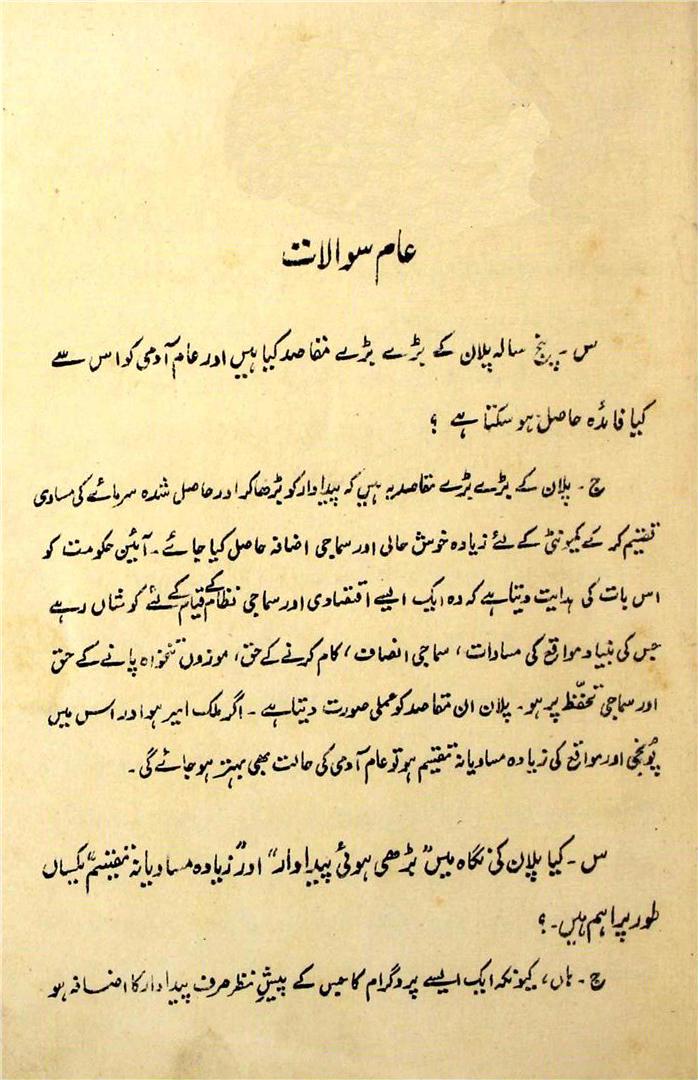 عام سوالات
س ۔ پنج سالہ پلان کے بڑے بڑے مقاصد کیا ہیں اور عام آدمی کو اس سے
کیا فائدہ حاصل ہو سکتا ہے ؟
ج ۔ پلان کے بڑے بڑے مقاصد یہ ہیں کہ پیداوار کو بڑھا کر اور حاصل شدہ سرمائے کی مساوی
تقسیم کر کے کمیونٹی کے لئے زیادہ خوش حالی اور سماجی اضافہ حاصل کیا جائے ۔ آئین حکومت کو
اس بات کی ہدایت دیتا ہے کہ وہ ایک ایسے اقتصادی اور سماجی نظام کے قیام کے لئے کوشاں رہے
جس کی بنیاد مواقع کی مساوات ، سماجی انصاف ، کام کرنے کے حق ، موزوں تنخواہ پانے کے حق
اور سماجی تحفّظ پر ہو ۔ پلان ان مقاصد کو عملی صورت دیتا ہے ۔ اگر ملک امیر ہو اور اس میں
پُونجی اور مواقع کی زیادہ مساویانہ تقسیم ہو تو عام آدمی کی حالت بھی بہتر ہو جائے گی ۔
س ۔ کیا پلان کی نگاہ میں ”بڑھی ہوئی پیداوار“ اور ”زیادہ مساویانہ تقسیم“ یکساں
طور پر اہم ہیں ۔ ؟
ج ۔ ہاں ، کیونکہ ایک ایسے پروگرام کا جس کے پیشِ نظر صرف پیداوار کا اضافہ ہو